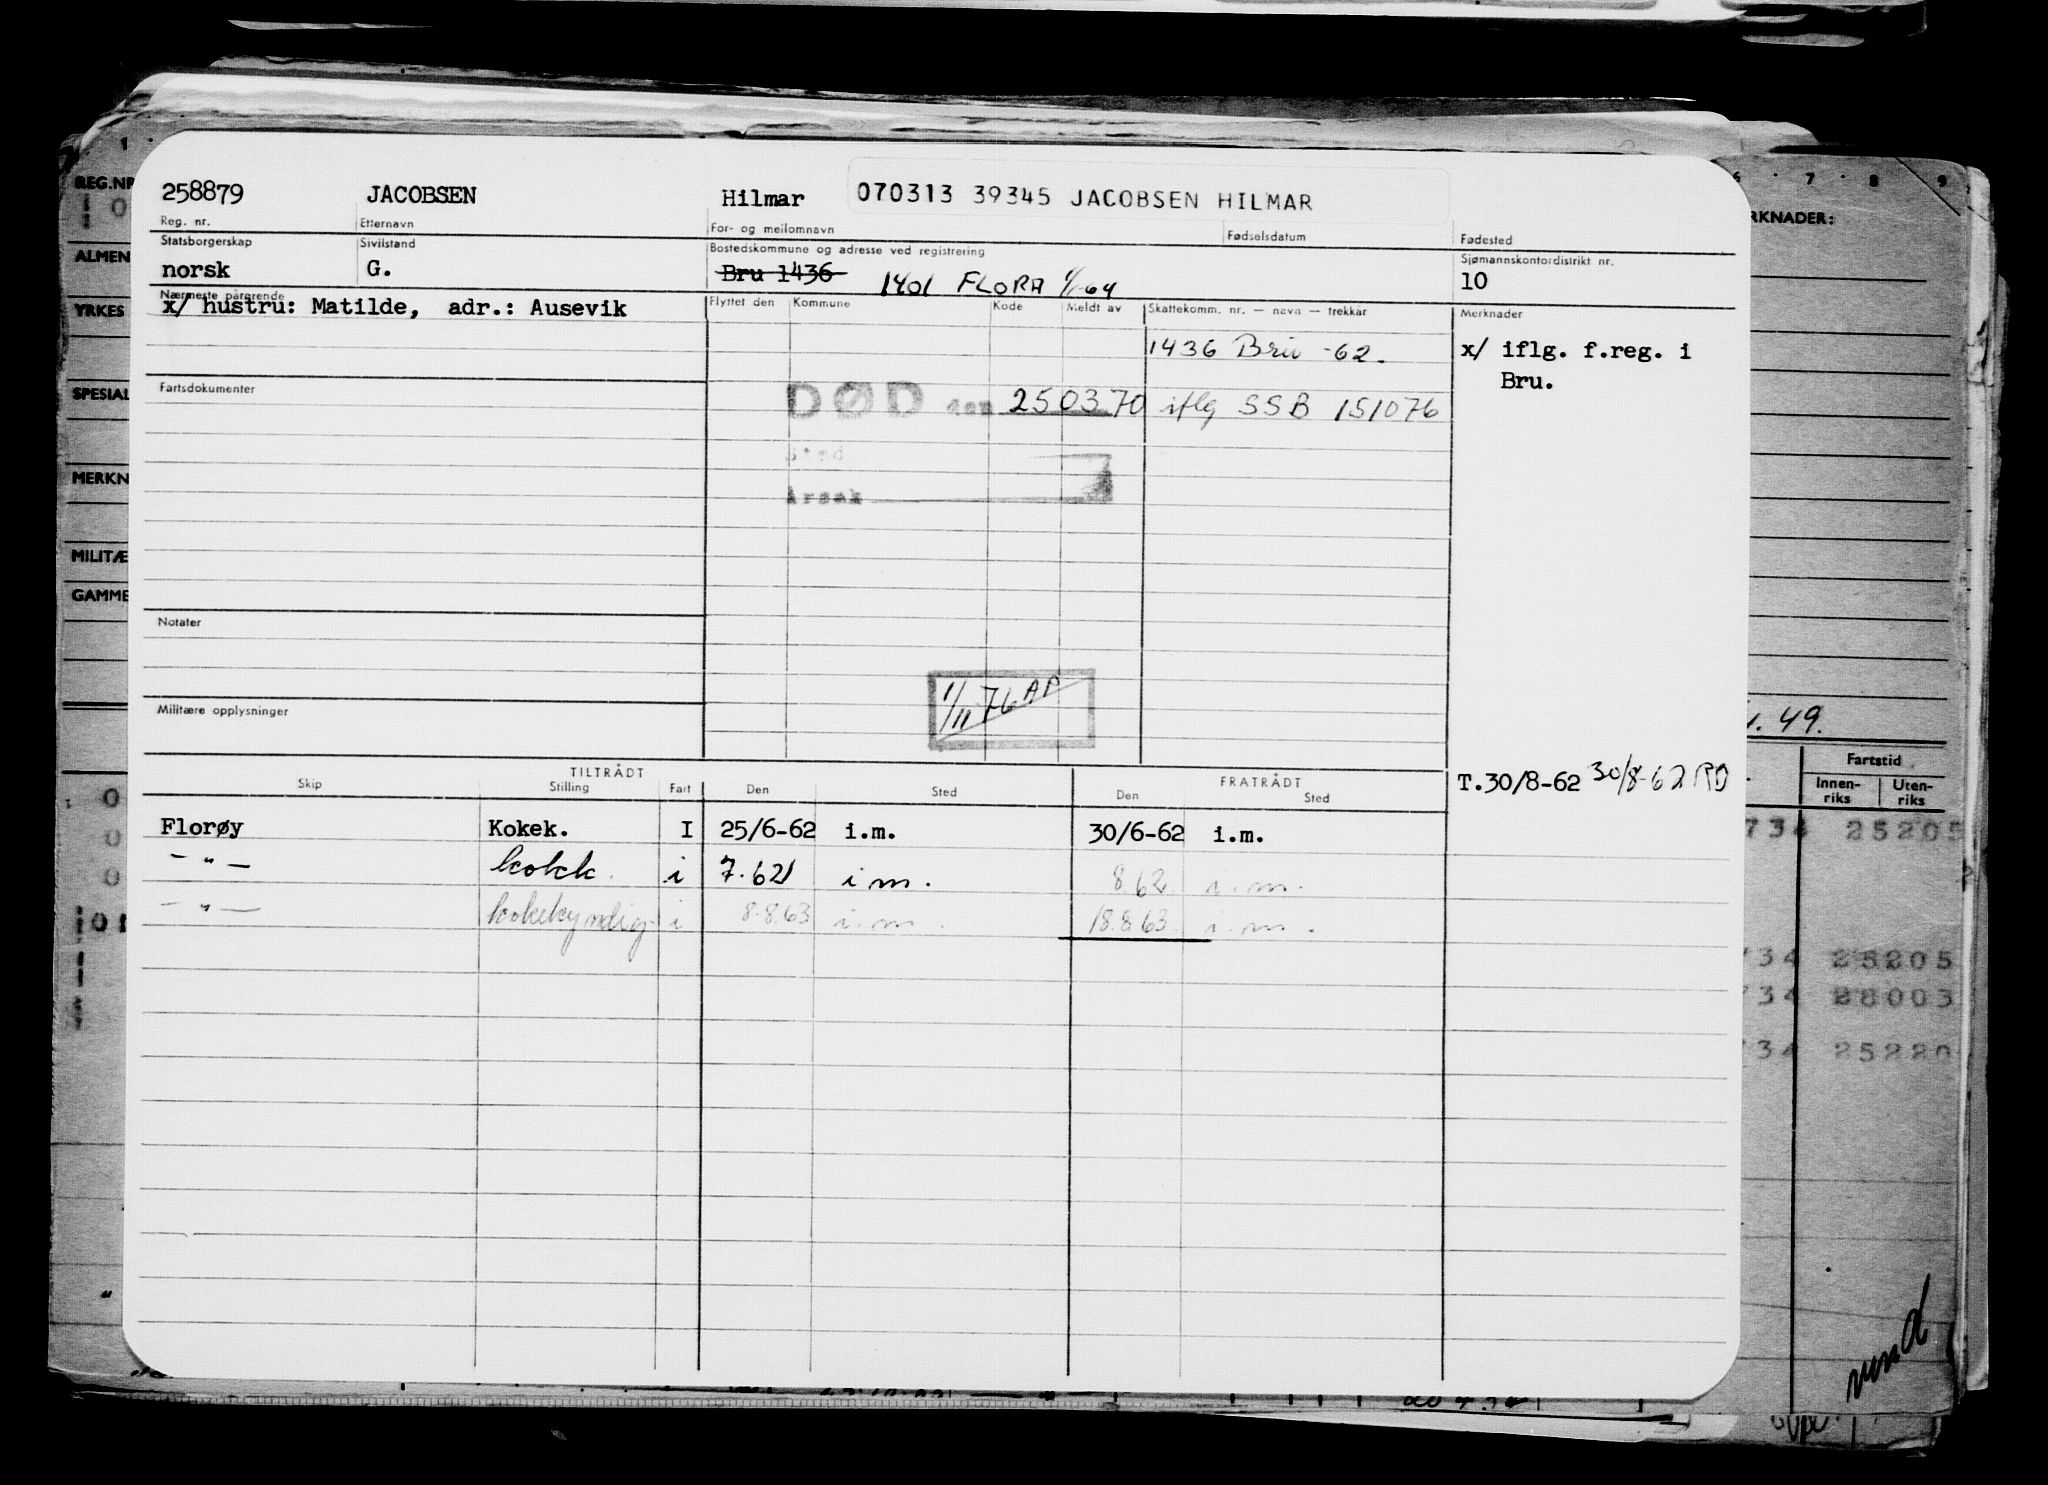 258879 JACOBSEN Hilmar 070313 39345 JACOBSEN HILMAR
Reg. nr. Etternavn For- og mellomnavn Fødselsdatum Fødested
Statsborgerskap Sivilstand Bostedskommune og adresse ved registrering Sjømannskontordistrikt nr.
norsk G. Bru 1436 1401 FLORA 1/1-64 10
Nærmeste pårørende Flyttet den Kommune Kode Meldt av Skattekomm. nr. — navn — trekkår Merknader
x/ hustru: Matilde, adr.: Ausevik
1436 Bru -62. x/ iflg. f.reg. i
Bru.
Fartsdokumenter
DØD den 250370 iflg SSB 151076
Sted
Årsak
Notater
1/11 76 AP
Militære opplysninger
TILTRÅDT FRATRÅDT
Skip Stilling Fart Den Sted Den Sted
T.30/8-62 30/8-62 RD
Florøy Kokek. I 25/6-62 i.m. 30/6-62 i.m.
— " — kokk. i 7.62 i m. 8.62 i.m.
— " — kokekyndig i 8.8.63 i.m. 18.8.63 i.m.
REG.NR
ALMEN
YRKES
SPESIAL
MERKN
MILITÆ
GAMME
6 7 8 9
RKNADER:
. 49.
Fartstid
Innen-riks Uten-riks
734 25205
734 25205
734 28003
734 25220
vend